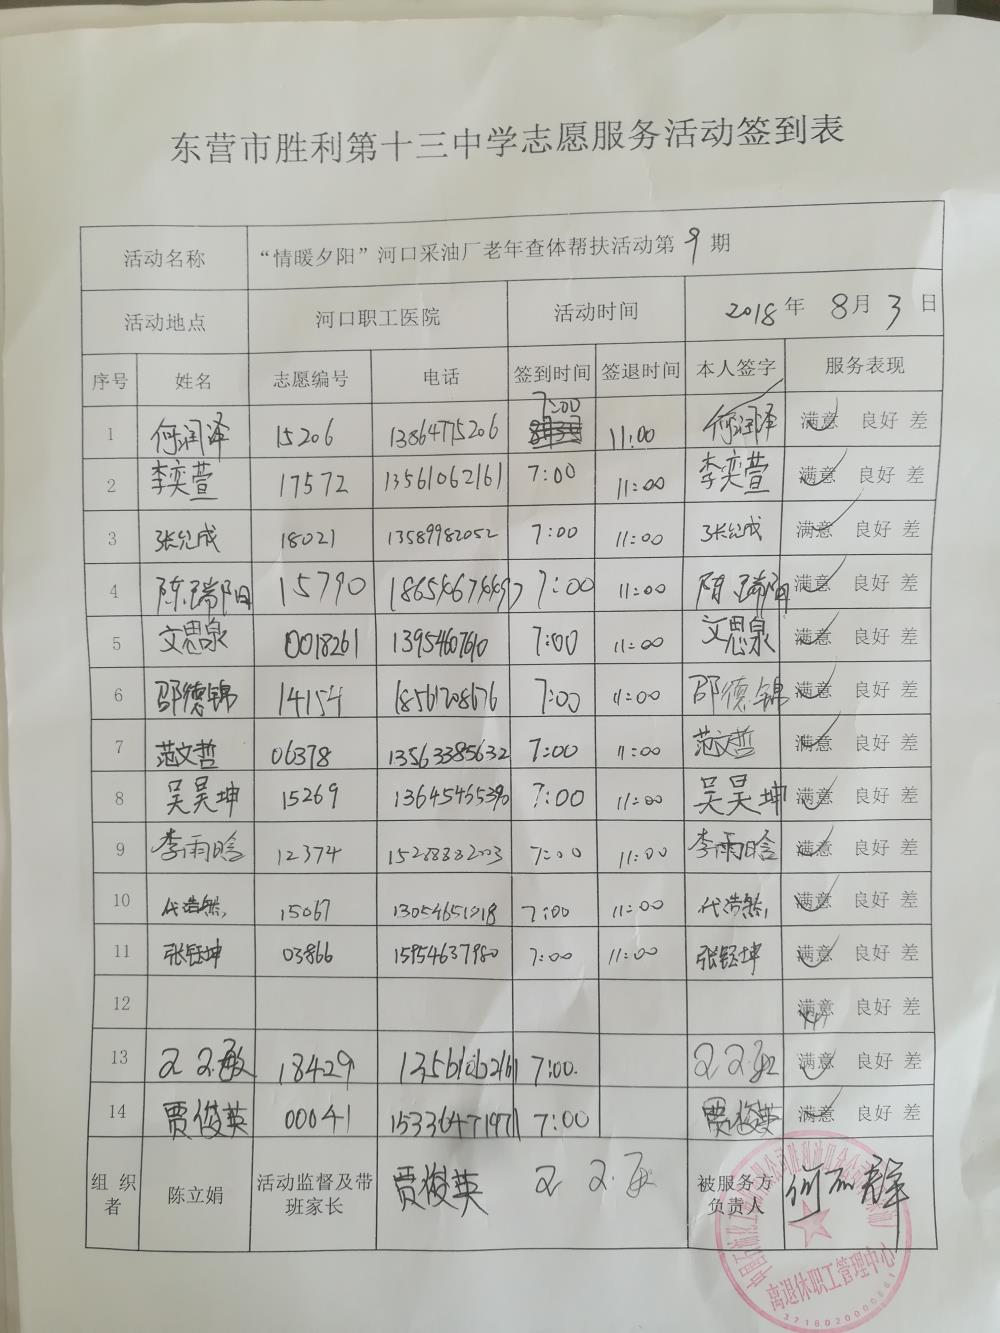 东营市胜利第十三中学志愿服务活动签到表
活动名称 “情暖夕阳”河口采油厂老年查体帮扶活动第 9 期
活动地点 河口职工医院 活动时间 2018 年 8 月 3 日
序号 姓名 志愿编号 电话 签到时间 签退时间 本人签字 服务表现
1 何润泽 15206 13864775206 7:00 11:00 何润泽 满意 良好 差
2 李奕萱 17572 13561062161 7:00 11:00 李奕萱 满意 良好 差
3 18021 13589982052 7:00 11:00 满意 良好 差
4 陈瑞阳 15790 7:00 11:00 陈瑞阳 满意 良好 差
5 文思泉 0018261 13954607610 7:00 11:00 文思泉 满意 良好 差
6 邵德锦 14154 18561208676 7:00 11:00 邵德锦 满意 良好 差
7 范文哲 06378 13563385632 7:00 11:00 范文哲 满意 良好 差
8 吴昊坤 15269 13645465390 7:00 11:00 吴昊坤 满意 良好 差
9 李雨晗 12374 15288882003 7:00 11:00 李雨晗 满意 良好 差
10 代浩然 15067 13054651218 7:00 11:00 代浩然 满意 良好 差
11 张钰坤 03866 15954637980 7:00 11:00 张钰坤 满意 良好 差
12 满意 良好 差
13 18429 13561062161 7:00 满意 良好 差
14 贾俊英 00041 15336471971 7:00 贾俊英 满意 良好 差
组织者 陈立娟 活动监督及带班家长 贾俊英 被服务方负责人
离退休职工管理中心
3718020000861